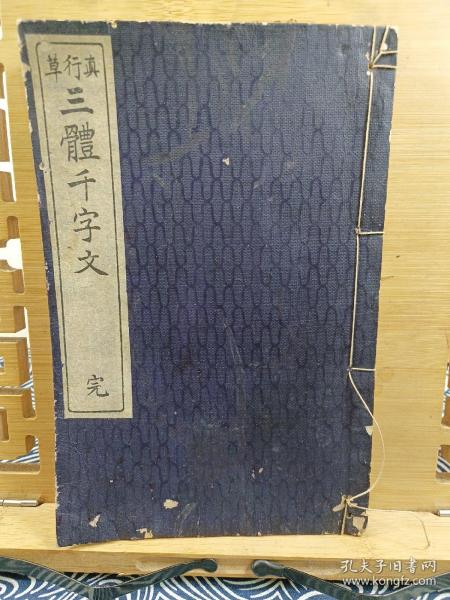 真行草
三體千字文
完
孔夫子旧书网
www.kongfz.com